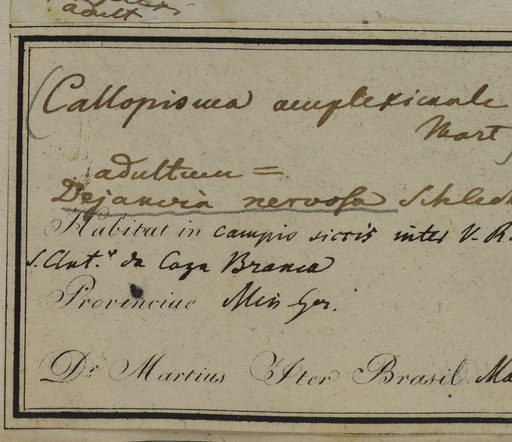 adult
(Callopisma amplexicaule
Mart
adultum =
Dejanira nervosa Schlech
Habitat in campis siccis inter V. R.
S. Ant.º da Caza Branca
Provinciae Min Ger.
Dr. Martius Iter Brasil. Ma